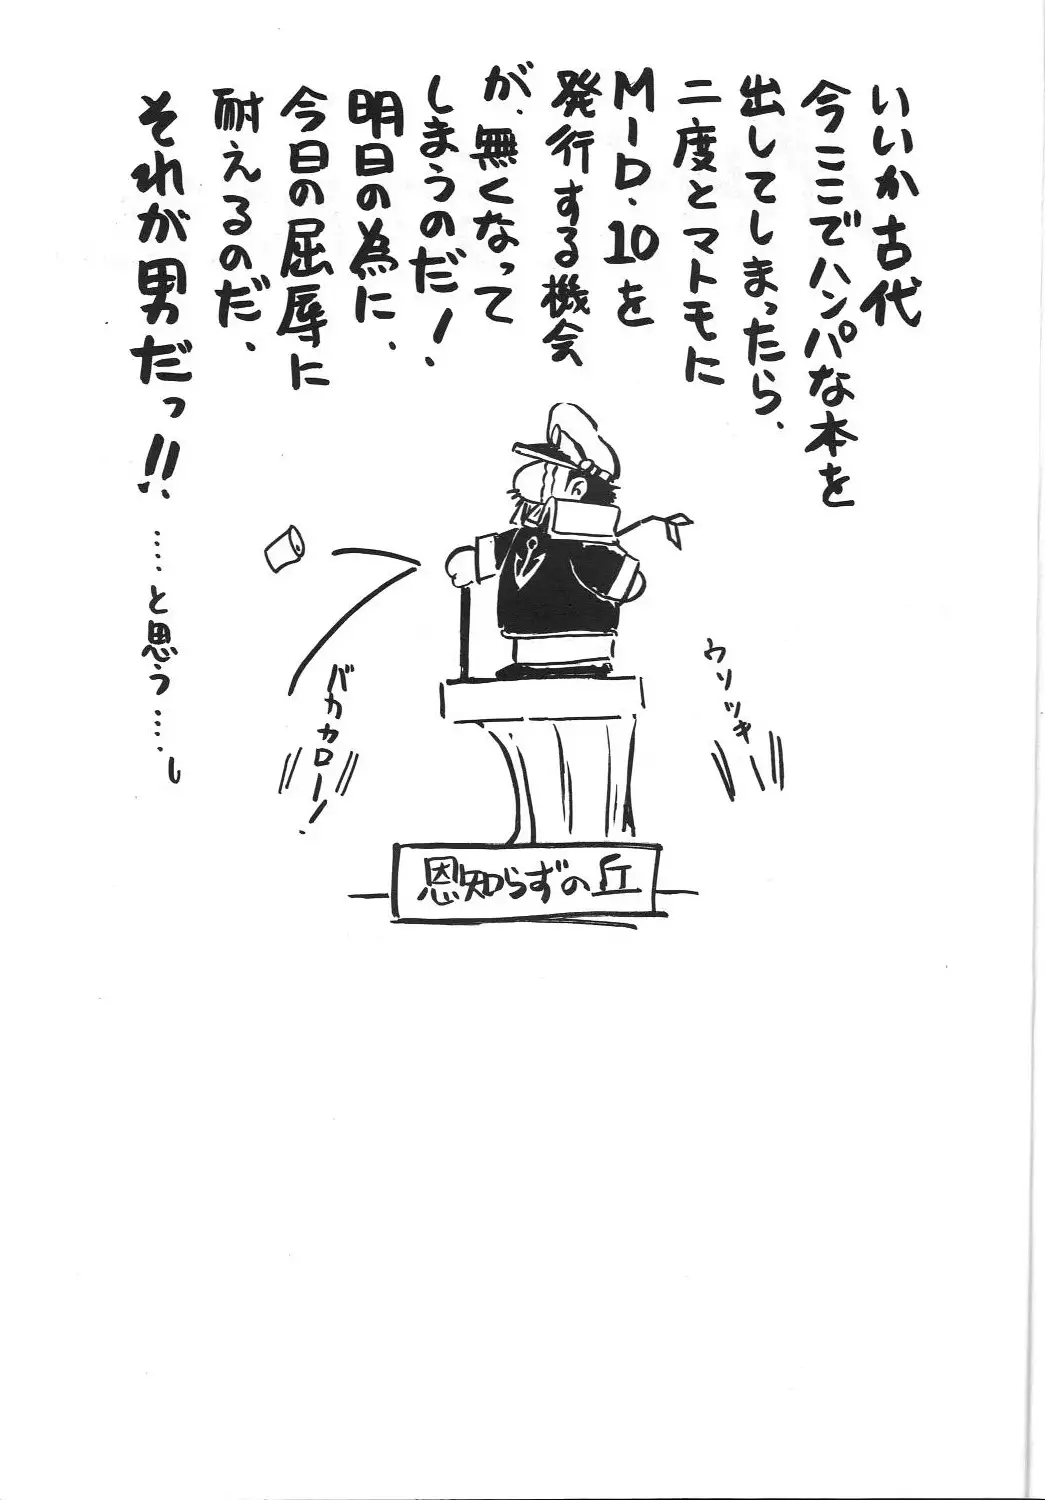 いいか古代
今ここでハンパな本を
出してしまったら、
二度とマトモに
M-D.10を
発行する機会
が、無くなって
しまうのだ!
明日の為に、
今日の屈辱に
耐えるのだ、
それが男だっ!!
……と思う…..し
ウソツキ
バカカロー!
恩知らずの丘